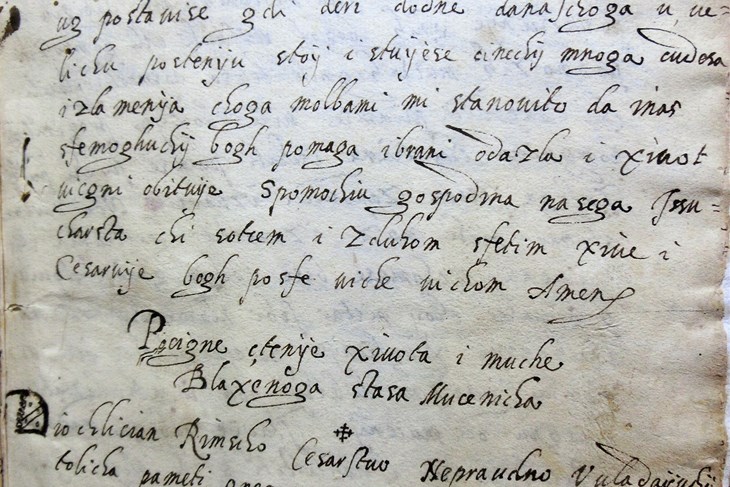 uz postavise gdi deri dodne danaschoga u ve=
lichu postenyu stoy i stuyese cinechy mnoga cudesa
i zlamenya choga molbami mi stanovito da inas
sfemoghuchy bogh pomaga ibrani odazla i xivot
vicgni obituye Spomochiu gospodina nasega Jesu=
charsta chi sotcem i zduhom sfetim xive i
Cesaruye bogh posfe viche vichom Amen
Picigne ctenye xivota i muche
Blaxenoga stasa Mucenicha
Diochlician Rimscho Cesarstvo Nepraudno Vuladayuchi
tolicha pameti